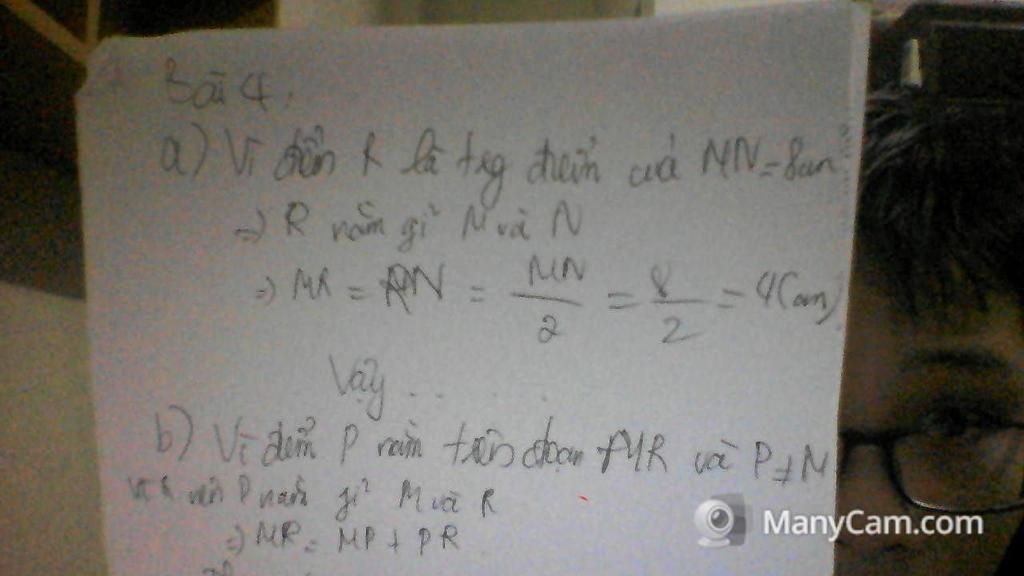 Bài 4.
a) Vì điểm R là trg điểm của MN = 8cm
=> R nằm giữ M và N
=> MR = RN = MN/2 = 8/2 = 4(cm)
Vậy . . . . .
b) Vì điểm P nằm trên đoạn MR và P ≠ M
và R nên P nằm giữ M và R
=> MR = MP + PR
ManyCam.com